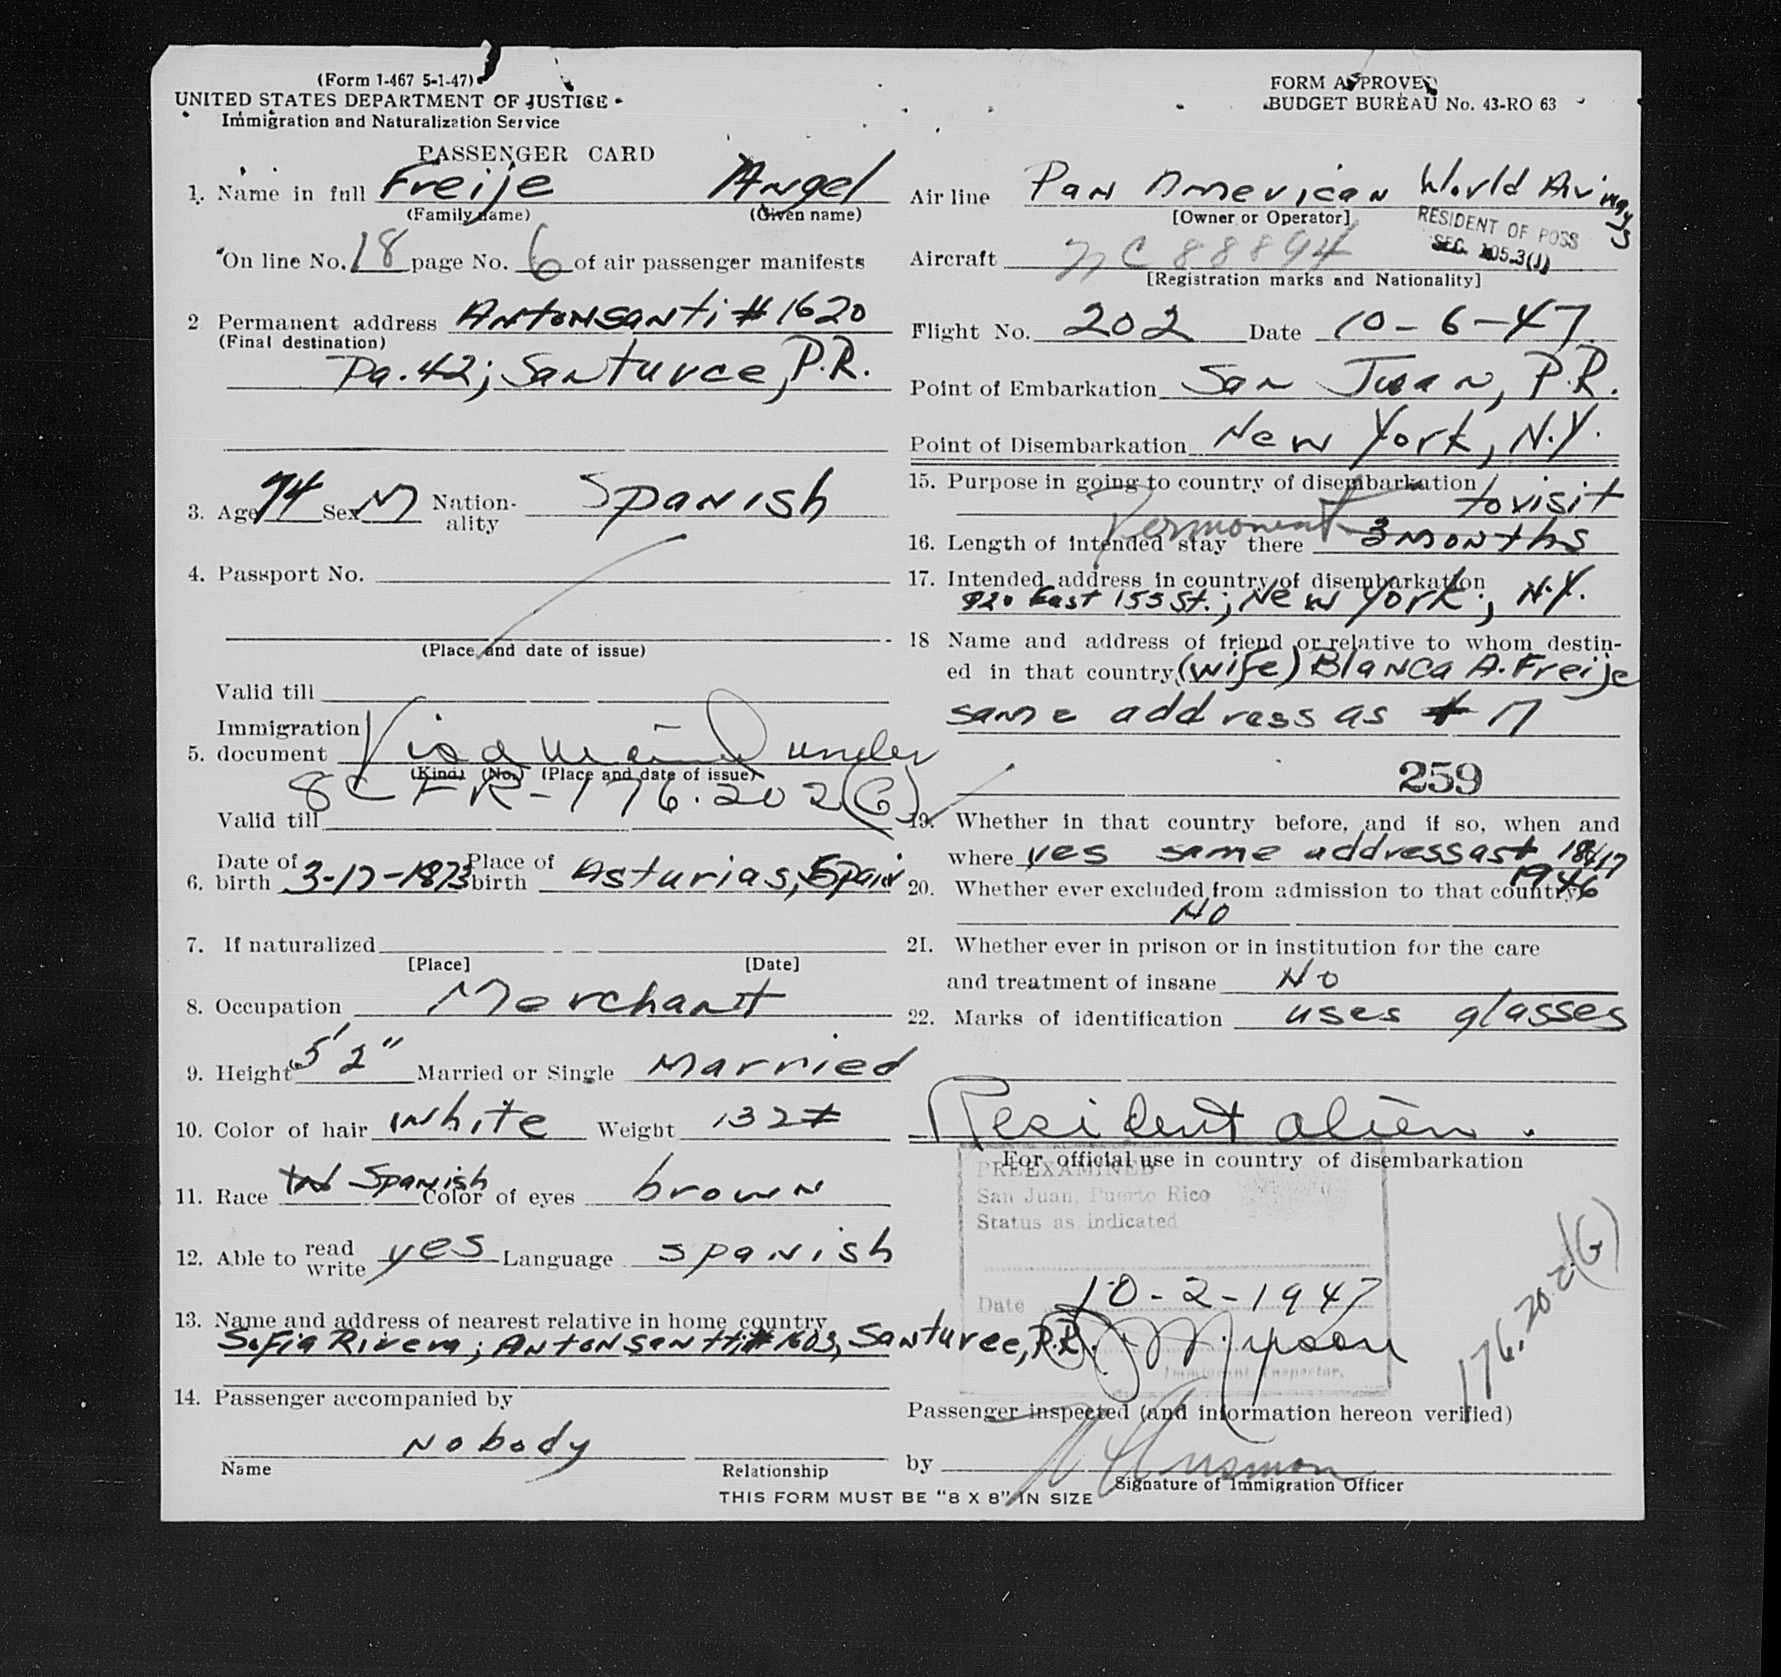 (Form 1-467 5-1-47)
UNITED STATES DEPARTMENT OF JUSTICE
Immigration and Naturalization Service
PASSENGER CARD
1. Name in full Freije Angel
(Family name) (Given name)
On line No. 18 page No. 6 of air passenger manifests
2 Permanent address Antonsanti # 1620
(Final destination)
Pa. 42; Santurce, P.R.
3. Age 74 Sex M Nation-ality Spanish
4. Passport No.
(Place and date of issue)
Valid till
Immigration
5. document Visa waived under
(Kind) (No.) (Place and date of issue)
8 CFR-176.202(G)
Valid till
6. Date of birth 3-17-1873 Place of birth Asturias, Spain
7. If naturalized
[Place] [Date]
8. Occupation Merchant
9. Height 5'2" Married or Single Married
10. Color of hair white Weight 132#
11. Race Spanish Color of eyes brown
12. Able to read write yes Language spanish
13. Name and address of nearest relative in home country
Sofia Rivera; Antonsantti # 1603, Santurce, P.R.
14. Passenger accompanied by
nobody
Name Relationship
THIS FORM MUST BE "8 X 8" IN SIZE
FORM APPROVED
BUDGET BUREAU No. 43-RO 63
Air line Pan American World Airways
[Owner or Operator]
RESIDENT OF POSS
SEC. 105.3(J)
Aircraft NC 88894
[Registration marks and Nationality]
Flight No. 202 Date 10-6-47
Point of Embarkation San Juan, P.R.
Point of Disembarkation New York, N.Y.
15. Purpose in going to country of disembarkation
to visit
Permanent
16. Length of intended stay there 3 months
17. Intended address in country of disembarkation
920 East 155 St.; New York; N.Y.
18 Name and address of friend or relative to whom destin-
ed in that country (wife) Blanca A. Freije
same address as # 17
259
19. Whether in that country before, and if so, when and
where yes same address as # 17
1946
20. Whether ever excluded from admission to that country
No
21. Whether ever in prison or in institution for the care
and treatment of insane No
22. Marks of identification uses glasses
Resident alien.
For official use in country of disembarkation
PREEXAMINED
San Juan, Puerto Rico
Status as indicated
Date 10-2-1947
Immigrant Inspector.
176.202(G)
Passenger inspected (and information hereon verified)
by
Signature of Immigration Officer